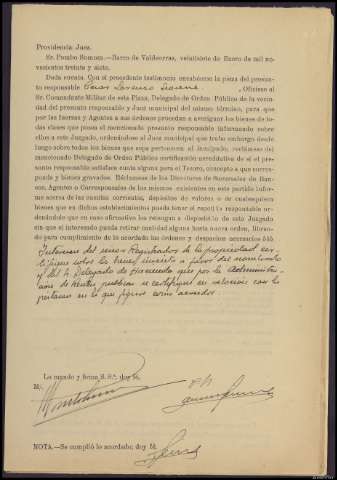 Providencia Juez.
Sr. Pumbo Somoza.—Barco de Valdeorras, veintisiete de Enero de mil no-
vecientos treinta y siete.
Dada cuenta. Con el precedente testimonio encabécese la pieza del presun-
to responsable Oficiese al
Sr. Comandante Militar de esta Plaza, Delegado de Orden Público de la vecin-
dad del presunto responsable y Juez municipal del mismo término, para que
por las fuerzas y Agentes a sus órdenes procedan a averiguar los bienes de to-
das clases que posea el mencionado presunto responsable informando sobre
ellos a este Juzgado, ordenándose al Juez municipal que trabe embargo desde
luego sobre todos los bienes que sepa pertenecen al inculpado, recábese del
mencionado Delegado de Orden Público certificación acreditativa de si el pre-
sunto responsable satisface cuota alguna para el Tesoro, concepto a que corres-
ponde y bienes gravados. Recábense de los Directores de Sucursales de Ban-
cos, Agentes o Corresponsales de los mismos existentes en este partido infor-
me acerca de las cuentas corrientes, depósitos de valores o de cualesquiera
bienes que en dichos establecimientos pueda tener el repetido responsable or-
denándoles que en caso afirmativo los retengan a disposición de este Juzgado
sin que el interesado pueda retirar cantidad alguna hasta nueva orden, librán-
do para cumplimiento de lo acordado las órdenes y despachos necesarios
Interesese del señor Registrador de la propiedad cer-
tifique sobre los bienes inscritos a favor del nombrado
y del Sr. Delegado de Hacienda que por la Administra-
cion de Rentas publicas se certifique en relacion con lo
pertinente en lo que figure como acreedor.
Lo mando y firma S. S.ª; doy fé.
NOTA.—Se cumplió lo acordado; doy fé.